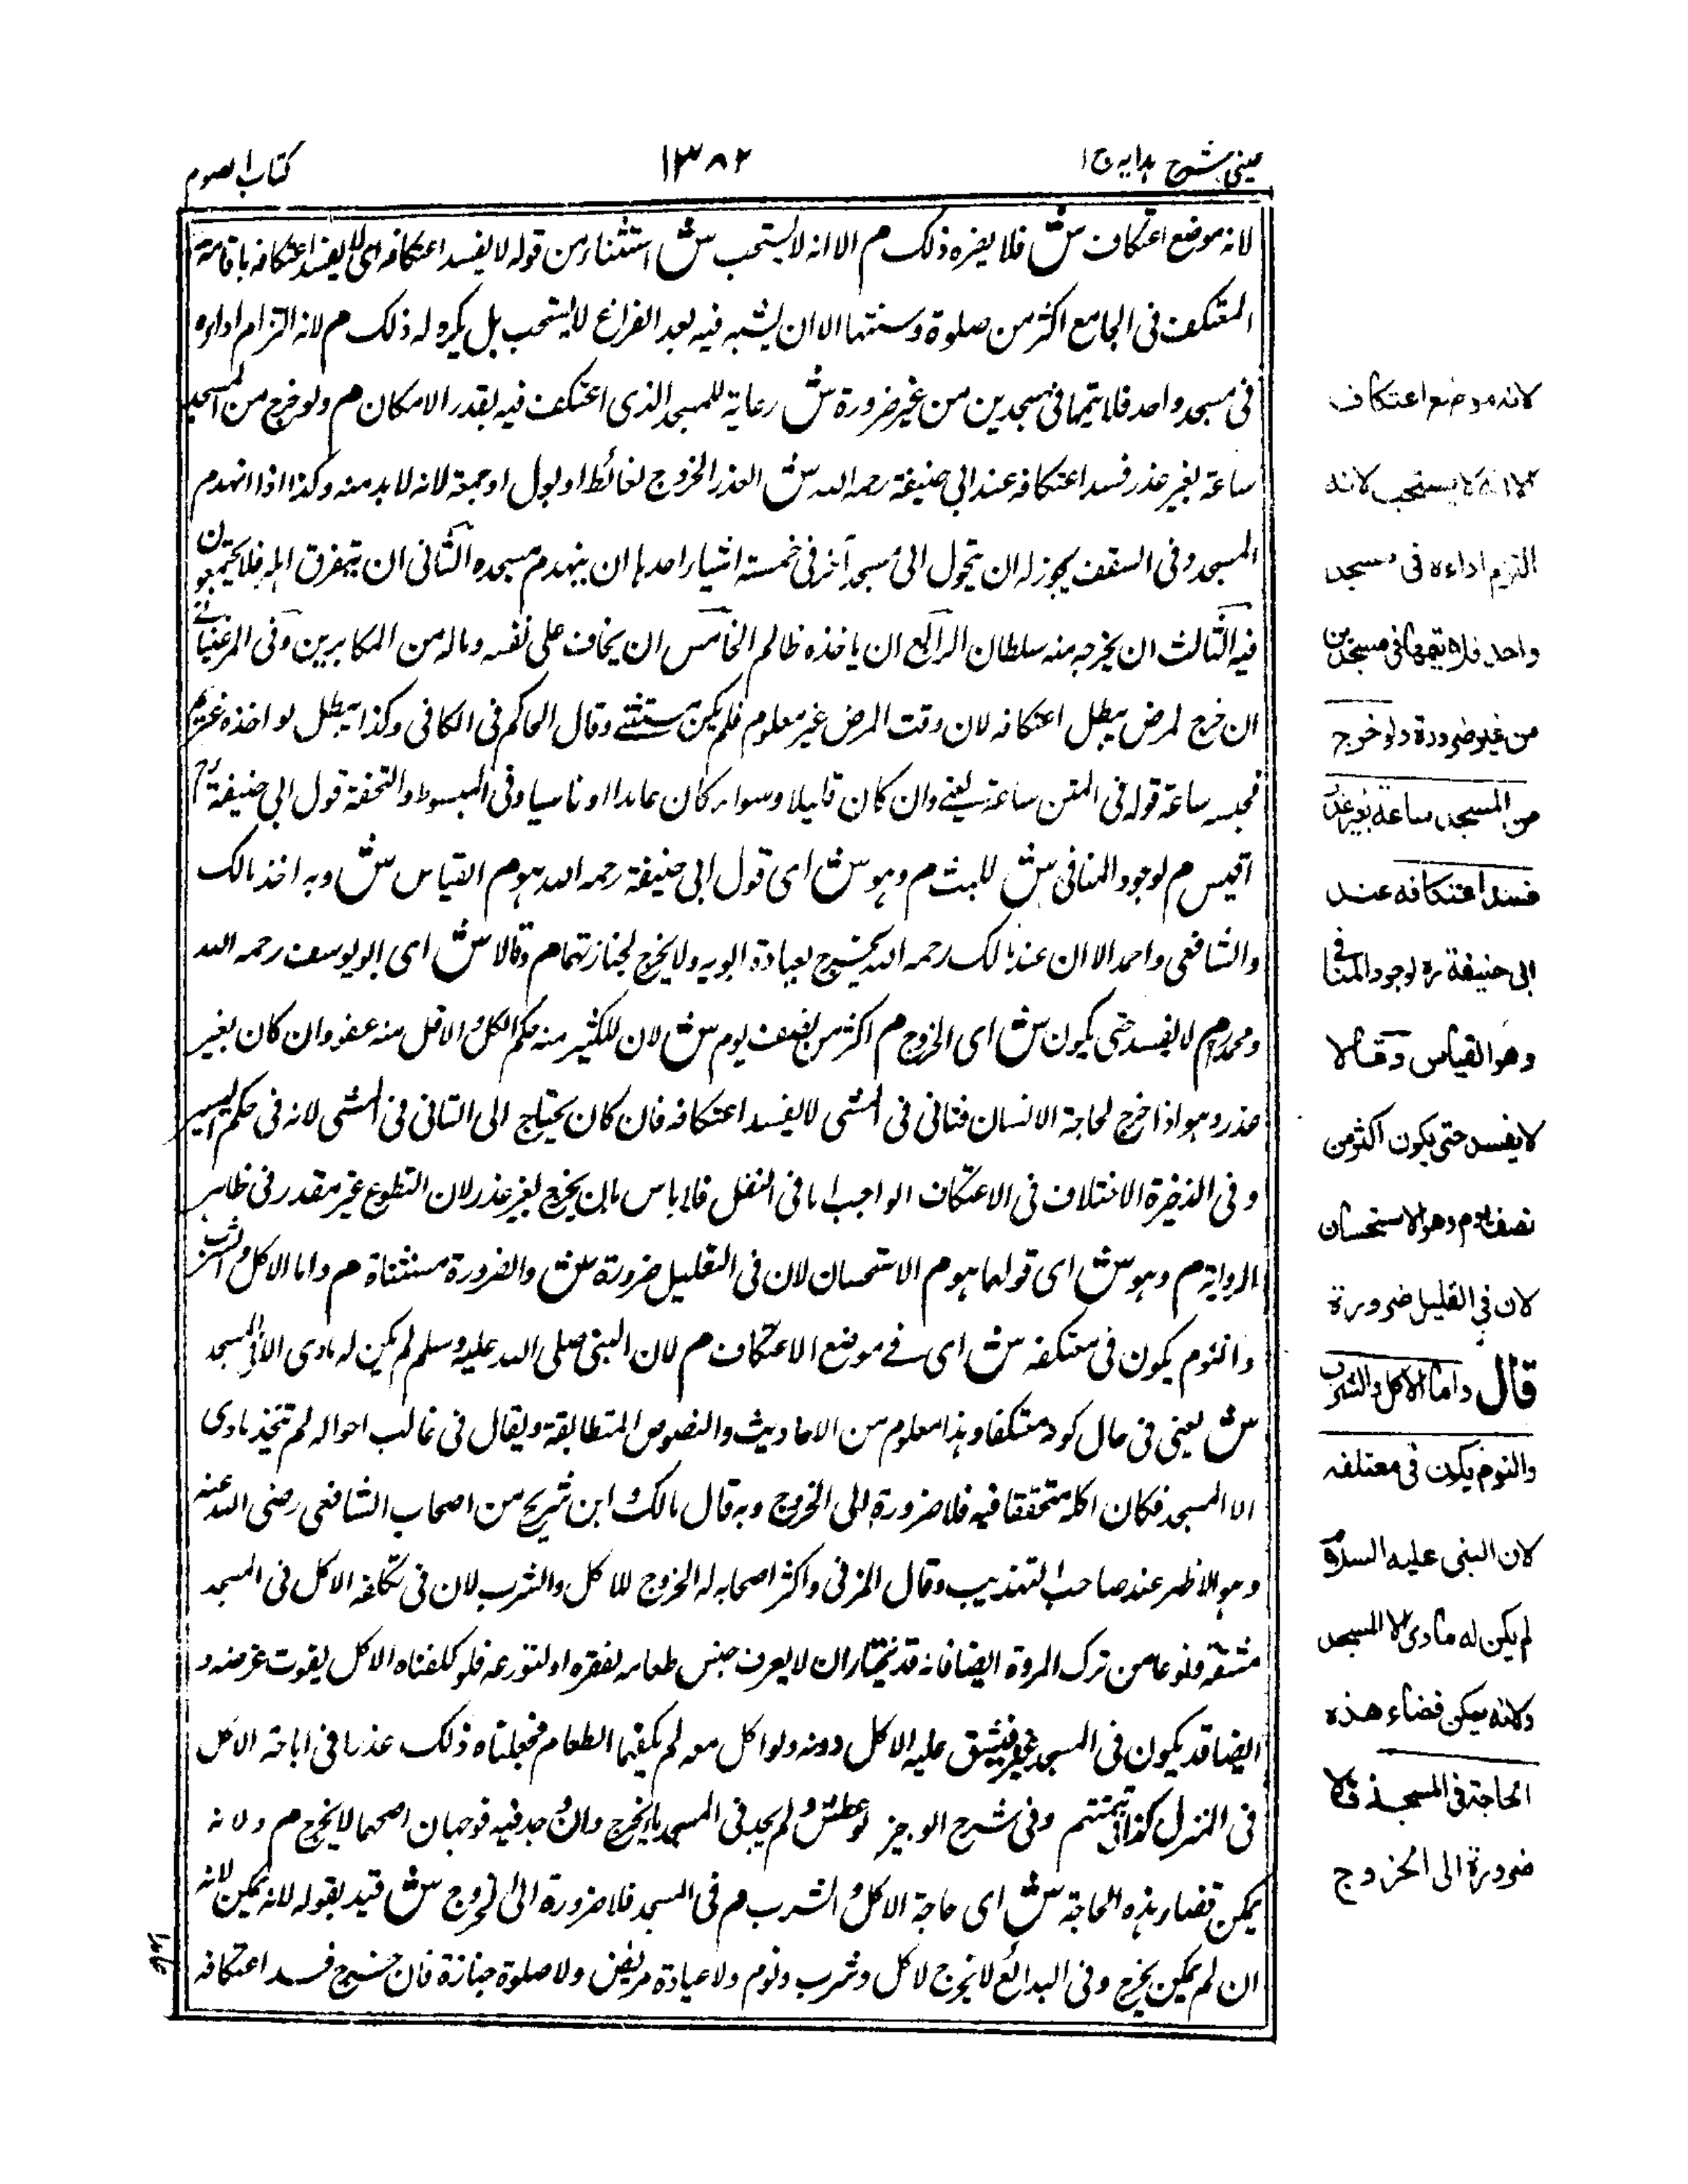 عينى شرح هدايه ج ١
١٣٨٢
كتاب الصوم
لانه موضع اعتكاف ش فلا يضره ذلك م الا انه لا يستحب ش استثناء من قوله لا يفسد اعتكافه اى لا يفسد اعتكافه باقامة
المعتكف فى الجامع اكثر من صلوة وسنتها الا ان لبثه فيه بعد الفراغ لا يستحب بل يكره له ذلك م لانه التزام اداؤه
فى مسجد واحد فلا يتمها فى مسجدين من غير ضرورة ش رعاية للمسجد الذى اعتكف فيه بقدر الامكان م ولو خرج من المسجد
ساعة بغير عذر فسد اعتكافه عند ابى حنيفة رحمه الله ش العذر الخروج لغائط او بول او جمعة لانه لا بد منه وكذا اذا انهدم
المسجد وفى السقف يجوز له ان يتحول الى مسجد آخر فى خمسة اشياء احدها ان ينهدم مسجده الثانى ان يتفرق اهله فلا يجتمعون
فيه الثالث ان يخرجه منه سلطان الرابع ان ياخذه ظالم الخامس ان يخاف على نفسه وماله من المكابرين وفى المرغينانى
ان خرج لمرض يبطل اعتكافه لان وقت المرض غير معلوم فلم يكن مستثنى وقال الحاكم فى الكافى وكذا يبطل لو اخذه غريم
فحبسه ساعة قوله فى المتن ساعة يعنى وان كان قليلا وسواء كان عامدا او ناسيا وفى المبسوط والتحفة قول ابى حنيفة رح
اقيس م لوجود المنافى ش للبث م وهو ش اى قول ابى حنيفة رحمه الله هو م القياس ش وبه اخذ مالك
والشافعى واحمد الا ان عند مالك رحمه الله يخرج لعيادة ابويه ولا يخرج لجنازتهما م وقالا ش اى ابو يوسف رحمه الله
ومحمد رح م لا يفسد حتى يكون ش اى الخروج م اكثر من نصف يوم ش لان للكثير منه حكم الكل والاقل منه عفو وان كان بغير
عذر وهو اذا خرج لحاجة الانسان فتانى فى المشى لا يفسد اعتكافه فان كان يحتاج الى التانى فى المشى لانه فى حكم اليسير
وفى الذخيرة الاختلاف فى الاعتكاف الواجب اما فى النفل فلا باس بان يخرج بغير عذر لان التطوع غير مقدر فى ظاهر
الرواية م وهو ش اى قولهما هو م الاستحسان لان فى القليل ضرورة ش والضرورة مستثناة م واما الاكل والشرب
والنوم يكون فى معتكفه ش اى فى موضع الاعتكاف م لان النبى صلى الله عليه وسلم لم يكن له ماوى الا فى المسجد
ش يعنى فى حال كونه معتكفا وهذا معلوم من الاحاديث والنصوص المتطابقة ويقال فى غالب احواله لم تتخذ ماوى
الا المسجد فكان اكله متحققا فيه فلا ضرورة الى الخروج وبه قال مالك وابن شريح من اصحاب الشافعى رضى الله عنه
وهو الاظهر عند صاحب التهذيب وقال المزنى واكثر اصحابه له الخروج للاكل والشرب لان فى تكلفه الاكل فى المسجد
مشقة ونوعا من ترك المروة ايضا فانه قد يختار ان لا يعرف جنس طعامه لفقره او لتورعه فلو كلفناه الاكل يفوت غرضه و
ايضا قد يكون فى المسجد غيره فيشق عليه الاكل دونه ولو اكل معه لم يكفهما الطعام فجعلناه ذلك عذرا فى اباحة الاكل
فى المنزل كذا فى وفى شرح الوجيز لو عطش ولم يجد فى المسجد ماء يخرج وان وجد فيه فوجهان اصحهما لا يخرج م ولانه
يمكن قضاء هذه الحاجة ش اى حاجة الاكل والشرب م فى المسجد فلا ضرورة الى الخروج ش قيد بقوله لانه يمكن لانه
ان لم يمكن يخرج وفى البدائع لا يخرج لاكل وشرب ونوم ولا عيادة مريض ولا صلوة جنازة فان خرج فسد اعتكافه
لانه موضع اعتكاف
الا انه لا يستحب لانه
التزم اداءه فى مسجد
واحد فلا يتمها فى مسجدين
من غير ضرورة ولو خرج
من المسجد ساعة بغير عذر
فسد اعتكافه عند
ابى حنيفة رح لوجود المنافى
وهو القياس وقالا
لا يفسد حتى يكون اكثر من
نصف يوم وهو الاستحسان
لان فى القليل ضرورة
قال واما الاكل والشرب
والنوم يكون فى معتكفه
لان النبى عليه السلام
لم يكن له ماوى الا المسجد
ولانه يمكن قضاء هذه
الحاجة فى المسجد فلا
ضرورة الى الخروج